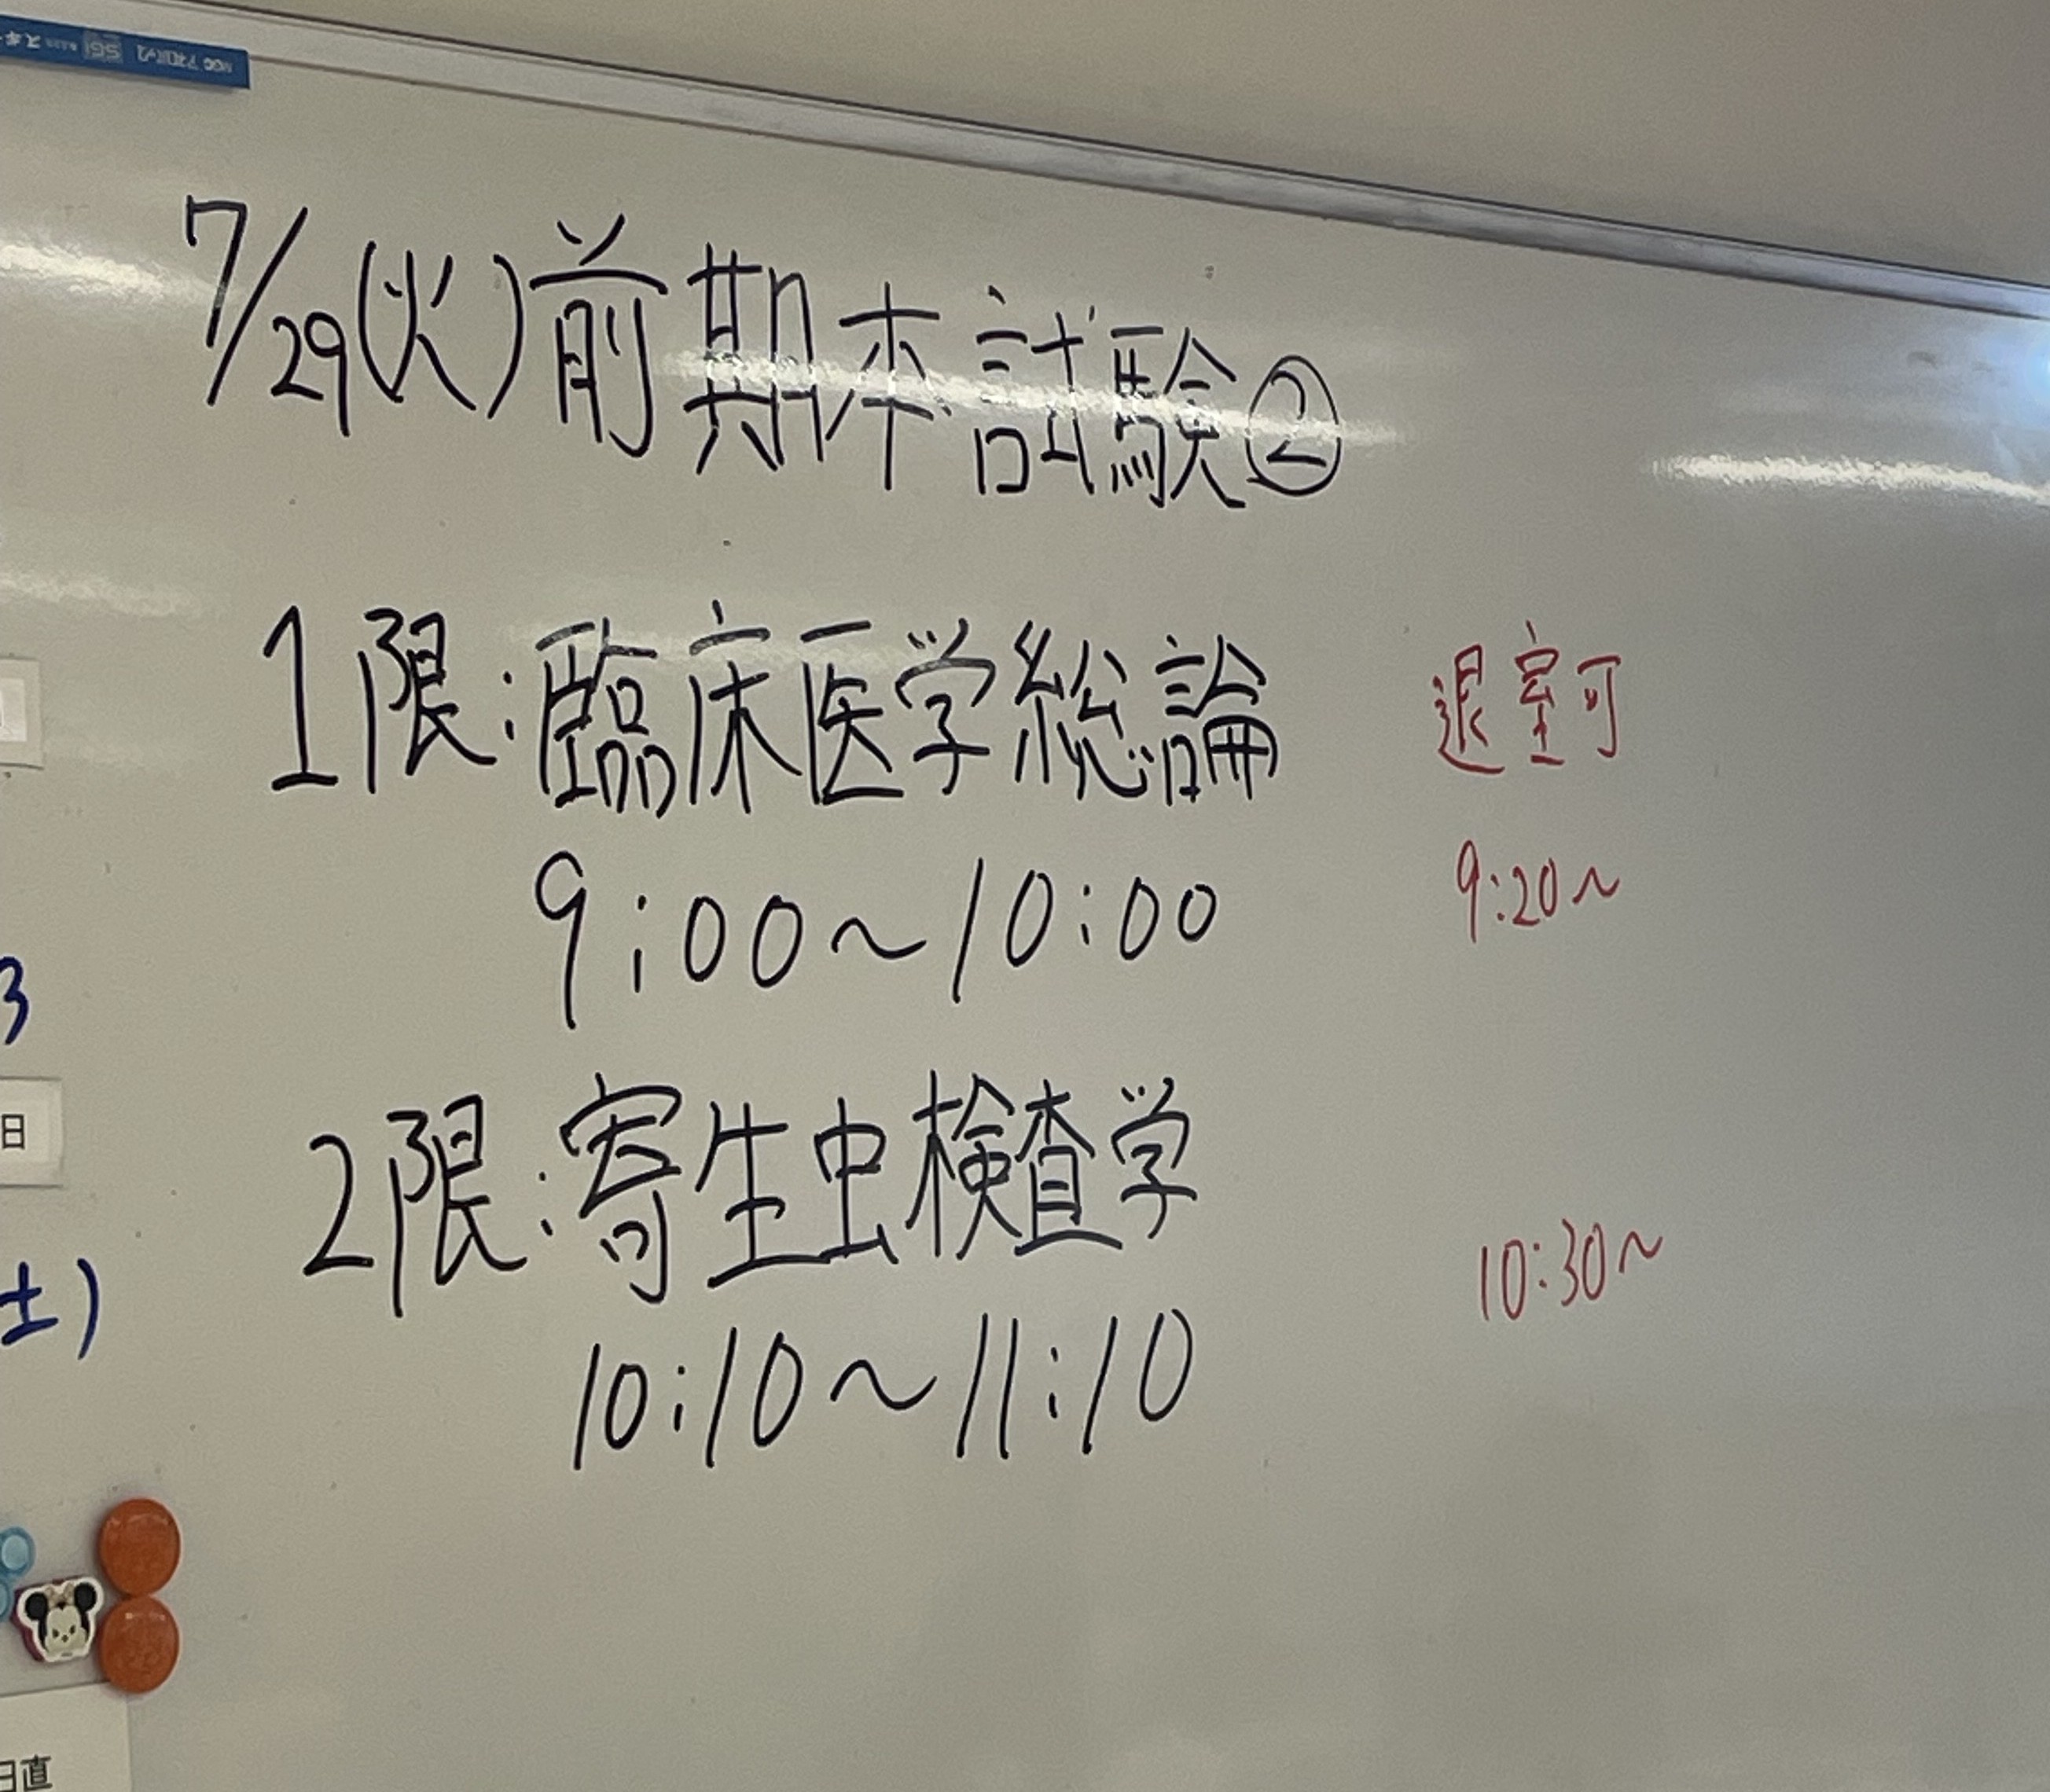 7/29(火)前期本試験②
1限:臨床医学総論
退室可
9:00~10:00
9:20~
2限:寄生虫検査学
10:10~11:10
10:30~
3
日
土)
日直